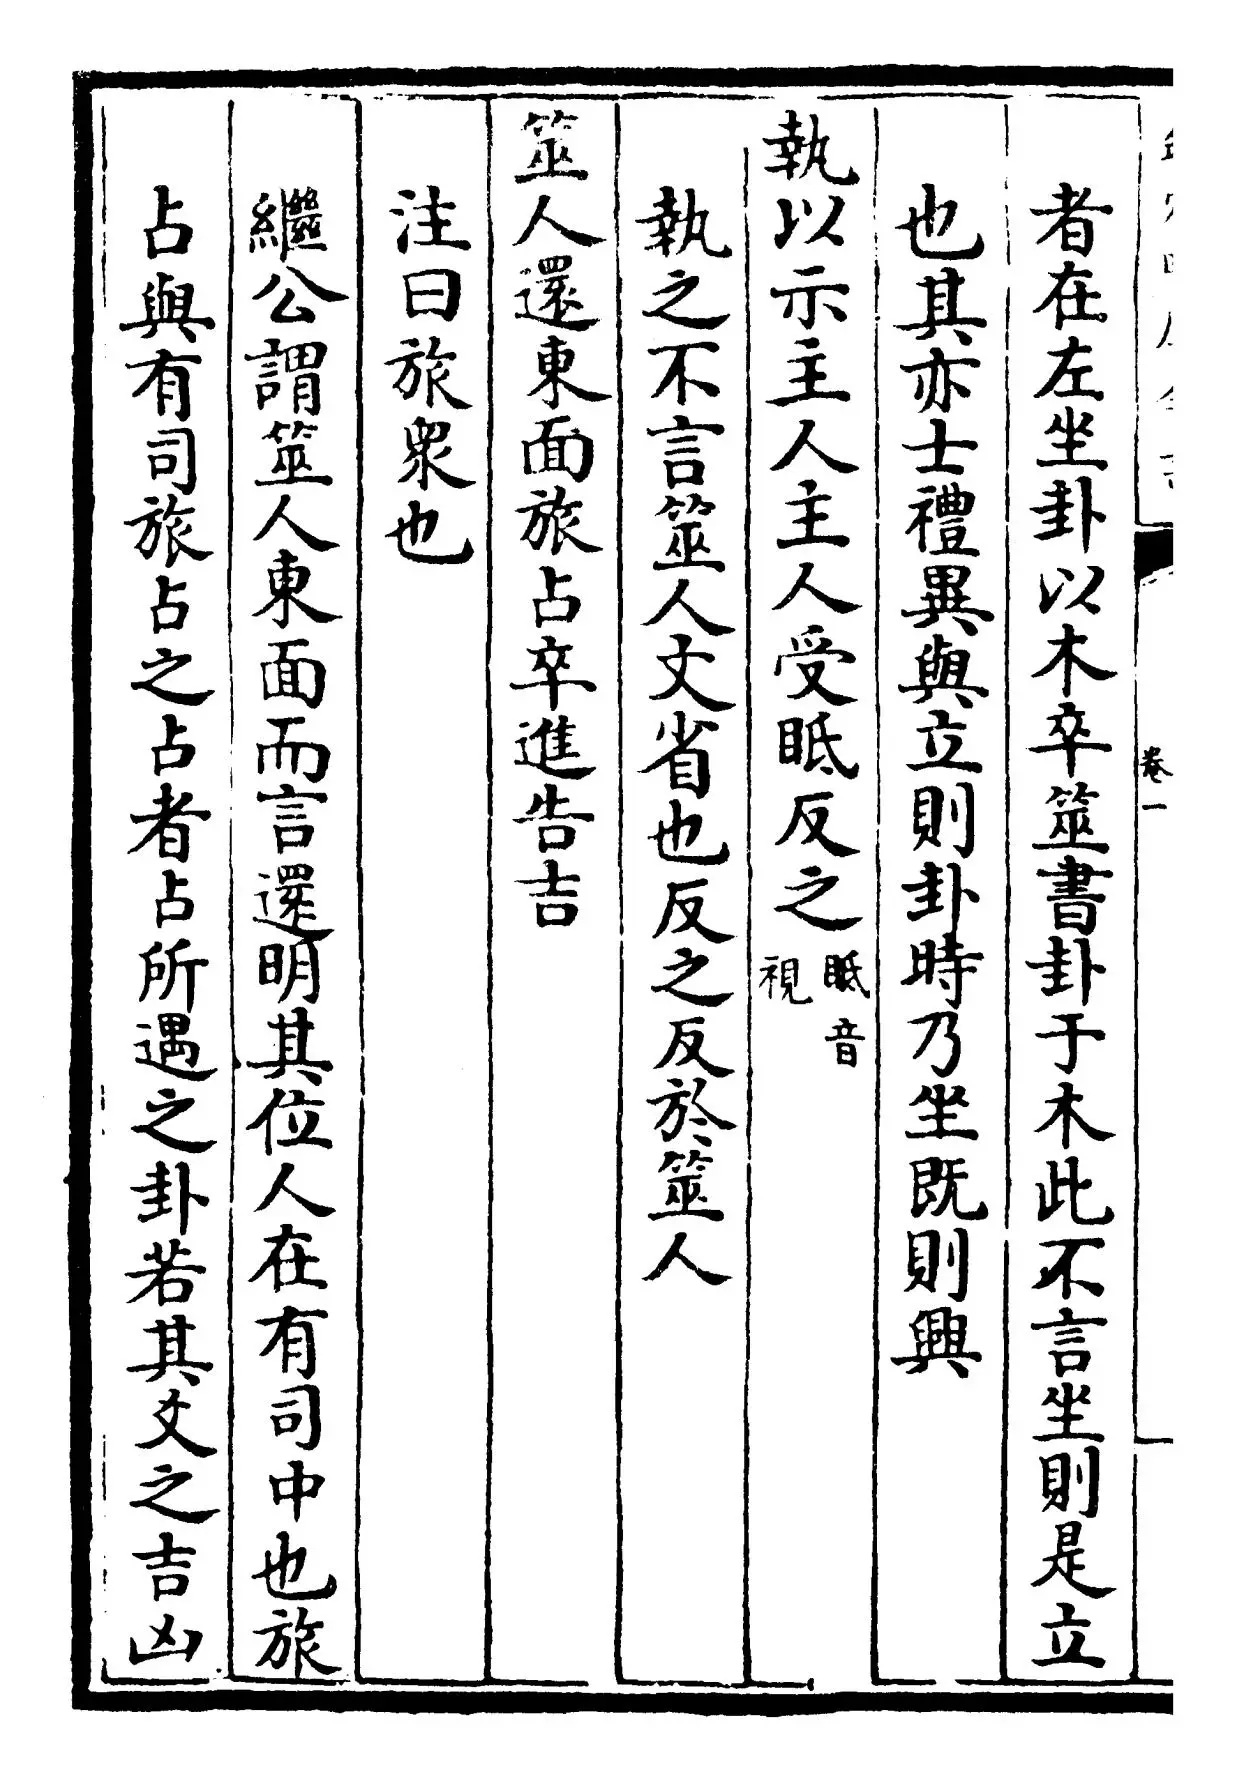 卷一
者在左坐卦以木卒筮書卦于木此不言坐則是立
也其亦士禮異與立則卦時乃坐既則興
執以示主人主人受眂反之眂音視
執之不言筮人文省也反之反於筮人
筮人還東面旅占卒進告吉
注曰旅衆也
繼公謂筮人東面而言還明其位人在有司中也旅
占與有司旅占之占者占所遇之卦若其爻之吉凶